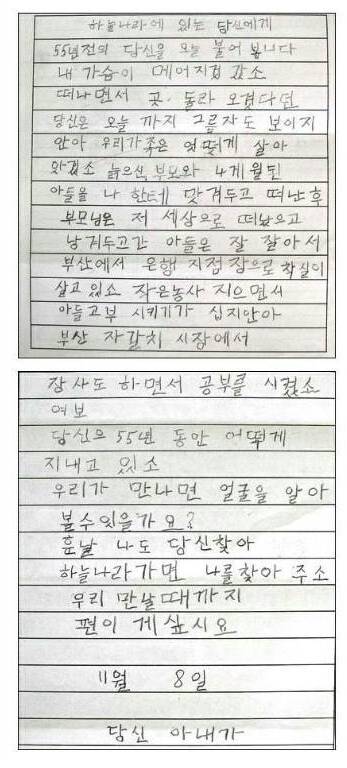 하늘나라에 있는 당신에게
55년전의 당신을 오늘 불어 봅니다
내 가슴이 메어지겁 갔소
떠나면서 곳. 돌라 오겠다던
당신은 오늘 까지 그름자도 보이지
안아 우리가족은 엇떻게 살아
와겠소 늙으신 부모와 4게월된
아들을 나 한테 맛겨두고 떠난후
부모님은 저 세상으로 떠났으고
남겨두고간 아들은 잘 잘아서
부산에서 은행 지점장으로 착실이
살고 있소 작은농사 지으면서
아들고부 시키기가 십지안아
부산 자갈치 시장에서
장사도 하면서 공부를 시켰소
여보
당신으 55년 동안 어떻게
지내고 있소
우리가 만나면 얼굴을 알아
볼수잇을가요?
훈날 나도 당신찾아
하늘나라가면 나를찾아 주소
우리 만날때까지
편이 게싶시요
11월 8일
당신 아내가